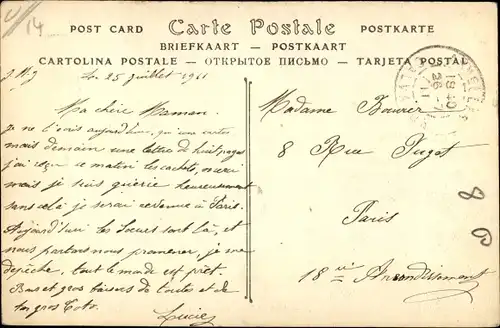 14
POST CARD Carte Postale POSTKARTE
BRIEFKAART — POSTKAART
CARTOLINA POSTALE — ОТКРЫТОЕ ПИСЬМО — TARJETA POSTAL
25 juillet 1911
Ma chère Maman
Je ne t'écris aujourd'hui, qu'une carte
mais demain une lettre de huit pages
j'ai reçu ce matin les cachets, merci
mais je suis guérie heureusement
sans cela je serai revenue à Paris.
Aujourd'hui les Soeurs sont là, et
nous partons nous promener, je me
dépêche, tout le monde est prêt.
Bons et gros baisers de toutes et de
ton gros Toto.
Lucie
Madame Bouvier
8 Rue Puget
Paris
18 Arrondissement
18 40
26
11
8